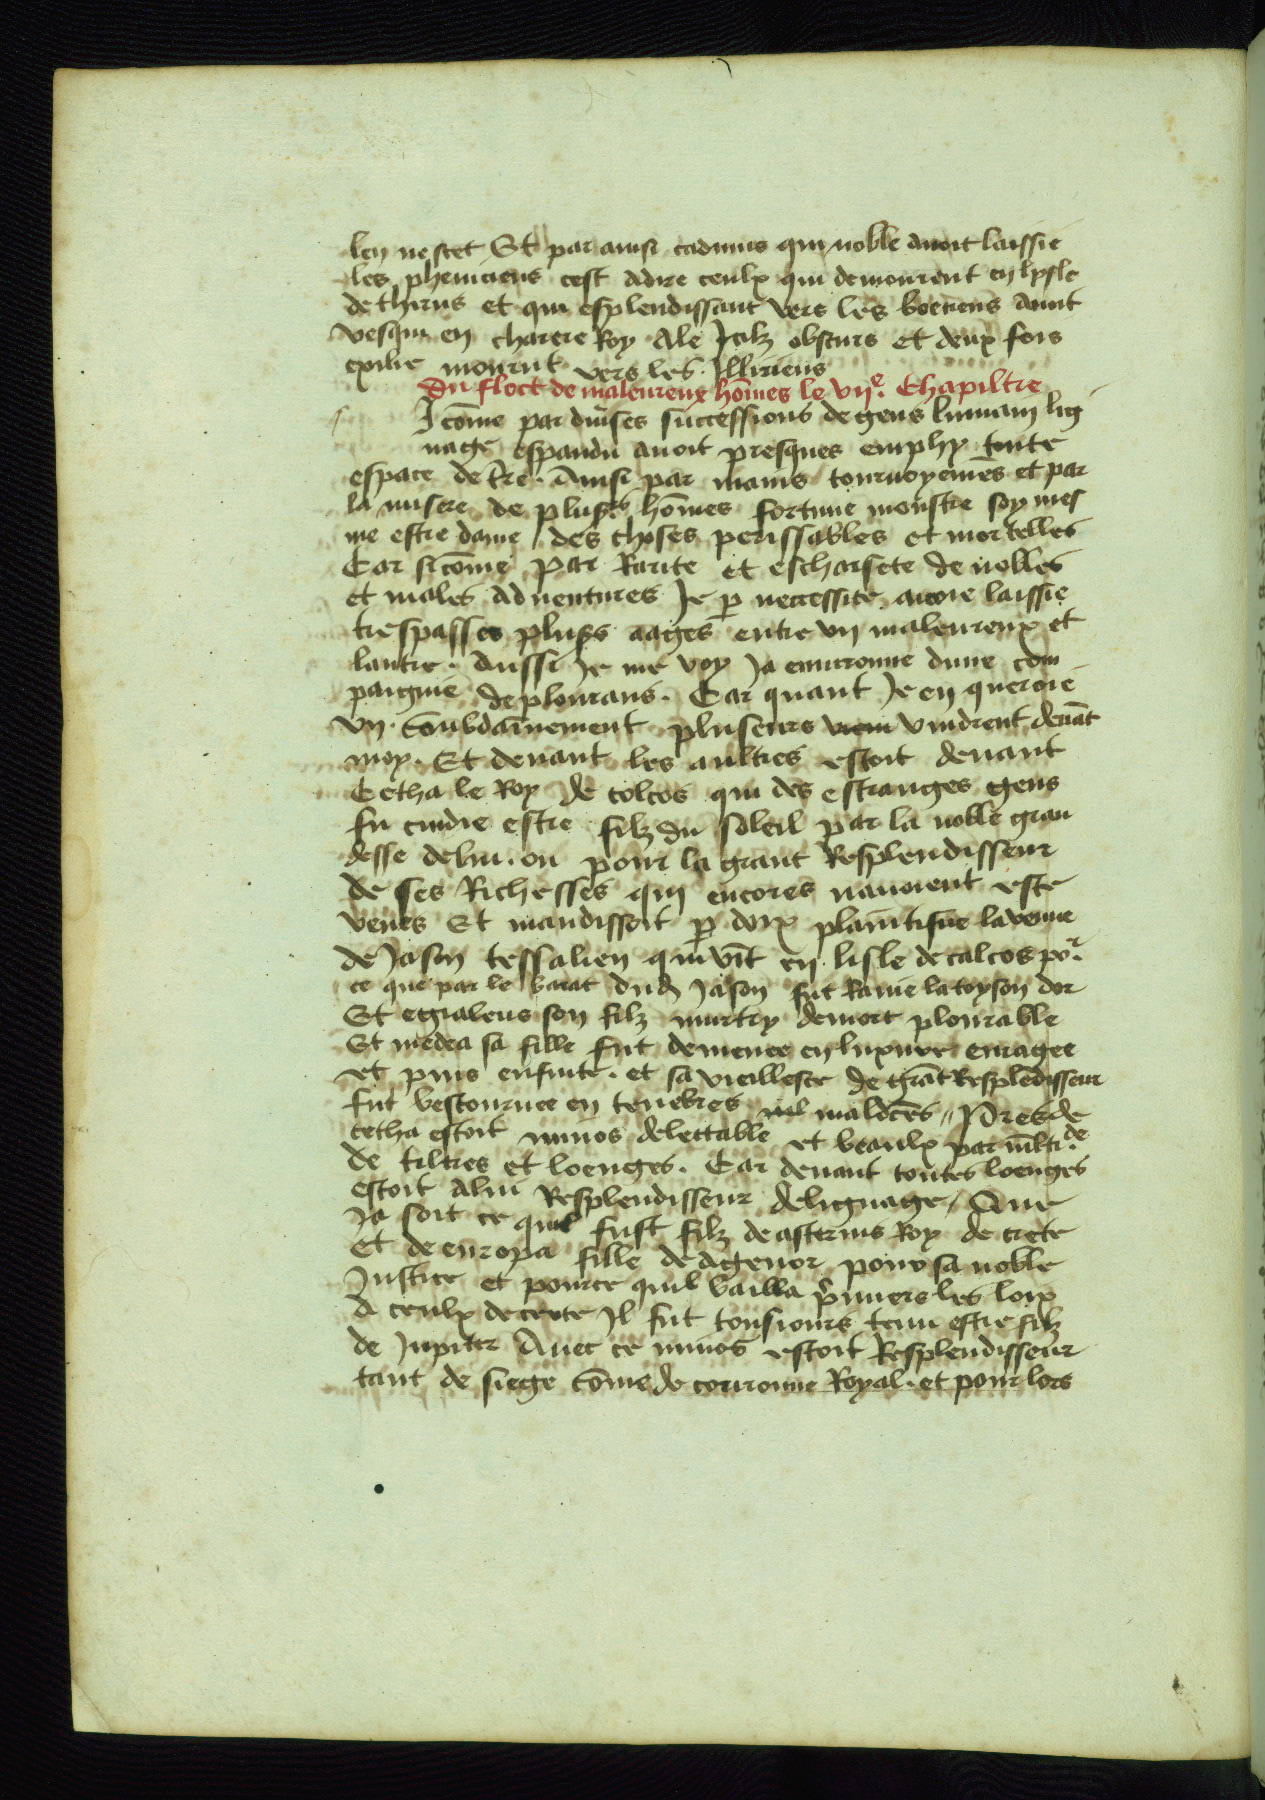 len nestet Et par ainsi cadmus qui noble auoit laissie
les pheniciens cest adire ceulx qui demourent en lysle
de thirus et qui esplendissant vers les boeciens auoit
vesqui en charere Roy Ale Icilz obscurs et deux fois
exilie mourut vers les Illiriens
Du floct de maleureux hōmes le vijᵉ. Chapiltre
Icōme par diuses successions de gens lumain lig
nage espandu auoit presques emply toute
espace de t̄re. Ainsi par mains tournoyemēs et par
la misere de plusrs hōmes fortune monstre soy mes
me estre dame des choses perissables et mortelles
Car sicōme par Rarite et escharsete de nobles
et males aduentures Je p̱ neccessite auoie laissie
trespasses plusrs aages entre vn maleureux et
lautre. Aussi Je me voy Ja enuironne dune com
paignie de plourans. Car quant Je en queroie
vn. Soubdainement pluseurs vindrent deuāt
moy. Et deuant les aultres estoit deuant
Oetha le Roy de colcos qui des estranges gens
fu cuidie estre filz du soleil par la noble gran
desse delui. ou pour la grant Resplendisseur
de ses Richesses qui encores nauoient este
venes Et maudissoit p̱ voix plaintisue lavenue
de Jason tessalien qui vīt en lisle de calcos poʳ
ce que par le barat dud Jason fut Rauie la toyson dor
Et egialeus son filz murtry demort plourable
Et medea sa fille fut demenee en luxure enragee
et puis enfuite. et sa vieillesce de grāt Resplēdisseur
fut bestournee en tenebres maldces // Pres de
oetha estoit minos delectable et beaulx par mlti de
de tiltres et loenges. Car deuant toutes loenges
estoit alui Resplendisseur delignage / Que
Ja soit ce quil fust filz de asterius Roy de crete
Et de europa fille de Agenor pour sa noble
Justice et pource quil bailla p̱miers les loix
A ceulx decrete Il fut tousiours tenu estre filz
de Jupiter Auec ce minos estoit Resplendisseur
tant de siege cōme de couronne Royal. et pour lors